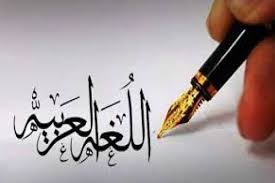 اللُغة العربيّة